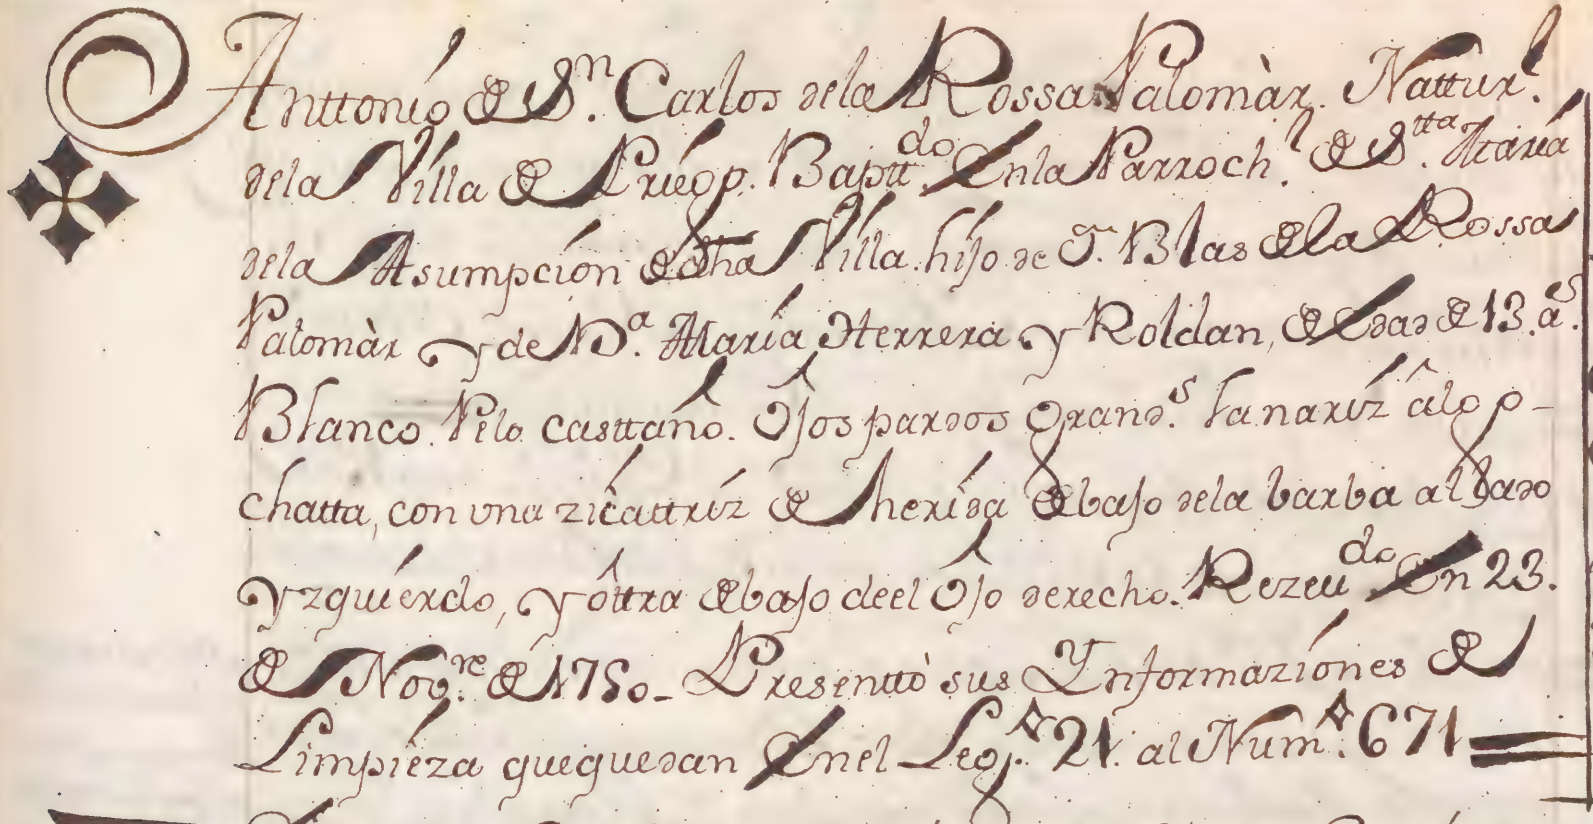 Anttonio de Sn. Carlos dela Rossa Palomàr. Natturl.
dela Villa de Priego. Baptt.do Enla Parroch.l de S.tta María
dela Asumpción de dha Villa. hijo de Dn. Blas de la Rossa
Palomàr y de D.a María Herrera y Roldan, de Edad de 13. a.s
Blanco. Pelo casttaño. Ojos pardos Grand.s la naríz âlgo
chatta, con una zicattríz de herida debajo dela barba al lado
yzquierdo, y ôttra debajo deel Ojo derecho. Rezeu.do En 23.
de Nov.re de 1750_ Presenttò sus Ynformaziones de
Limpieza quequedan Enel Legj.o 21. al Num.o 671